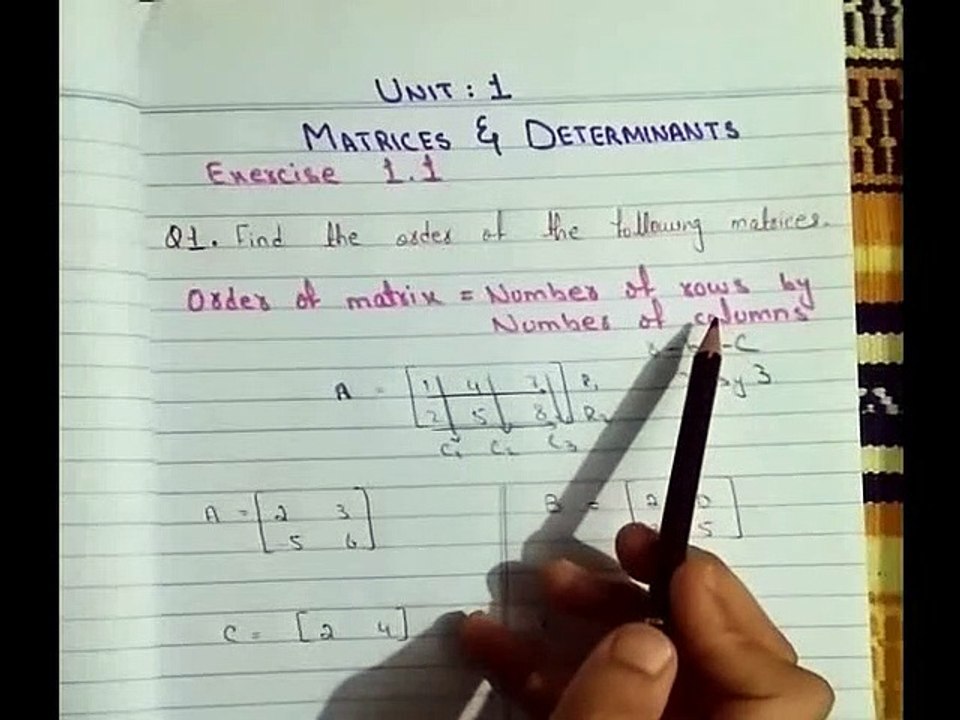 UNIT : 1
MATRICES & DETERMINANTS
Exercise 1.1
Q1. Find the order of the following matrices.
Order of matrix = Number of rows by
Number of columns
-C
by 3
A = [1 4 7] R1
[2 5 8] R2
C1 C2 C3
A = [2 3
5 6]
B = [2 0
5]
C = [2 4]